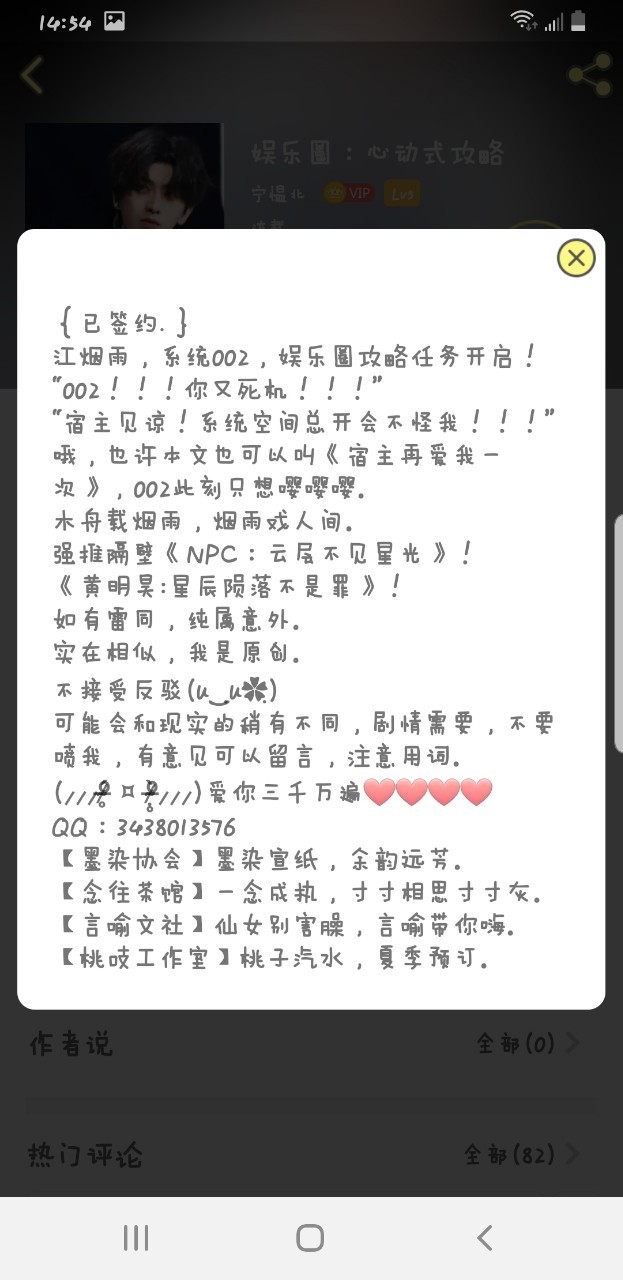 14:54
娱乐圈:心动式攻略
宁榅北 VIP Lv5
连载
{已签约.}
江烟雨,系统002,娱乐圈攻略任务开启!
“002!!!你又死机!!!”
“宿主见谅!系统空间总开会不怪我!!!”
哦,也许本文也可以叫《宿主再爱我一
次》,002此刻只想嘤嘤嘤。
木舟载烟雨,烟雨戏人间。
强推隔壁《NPC:云层不见星光》!
《黄明昊:星辰陨落不是罪》!
如有雷同,纯属意外。
实在相似,我是原创。
不接受反驳(u‿u✿)
可能会和现实的稍有不同,剧情需要,不要
喷我,有意见可以留言,注意用词。
爱你三千万遍❤❤❤❤
QQ:3438013576
【墨染协会】墨染宣纸,余韵远芳。
【念往茶馆】一念成执,寸寸相思寸寸灰。
【言喻文社】仙女别害臊,言喻带你嗨。
【桃吱工作室】桃子汽水,夏季预订。
作者说 全部(0)
热门评论 全部(82)